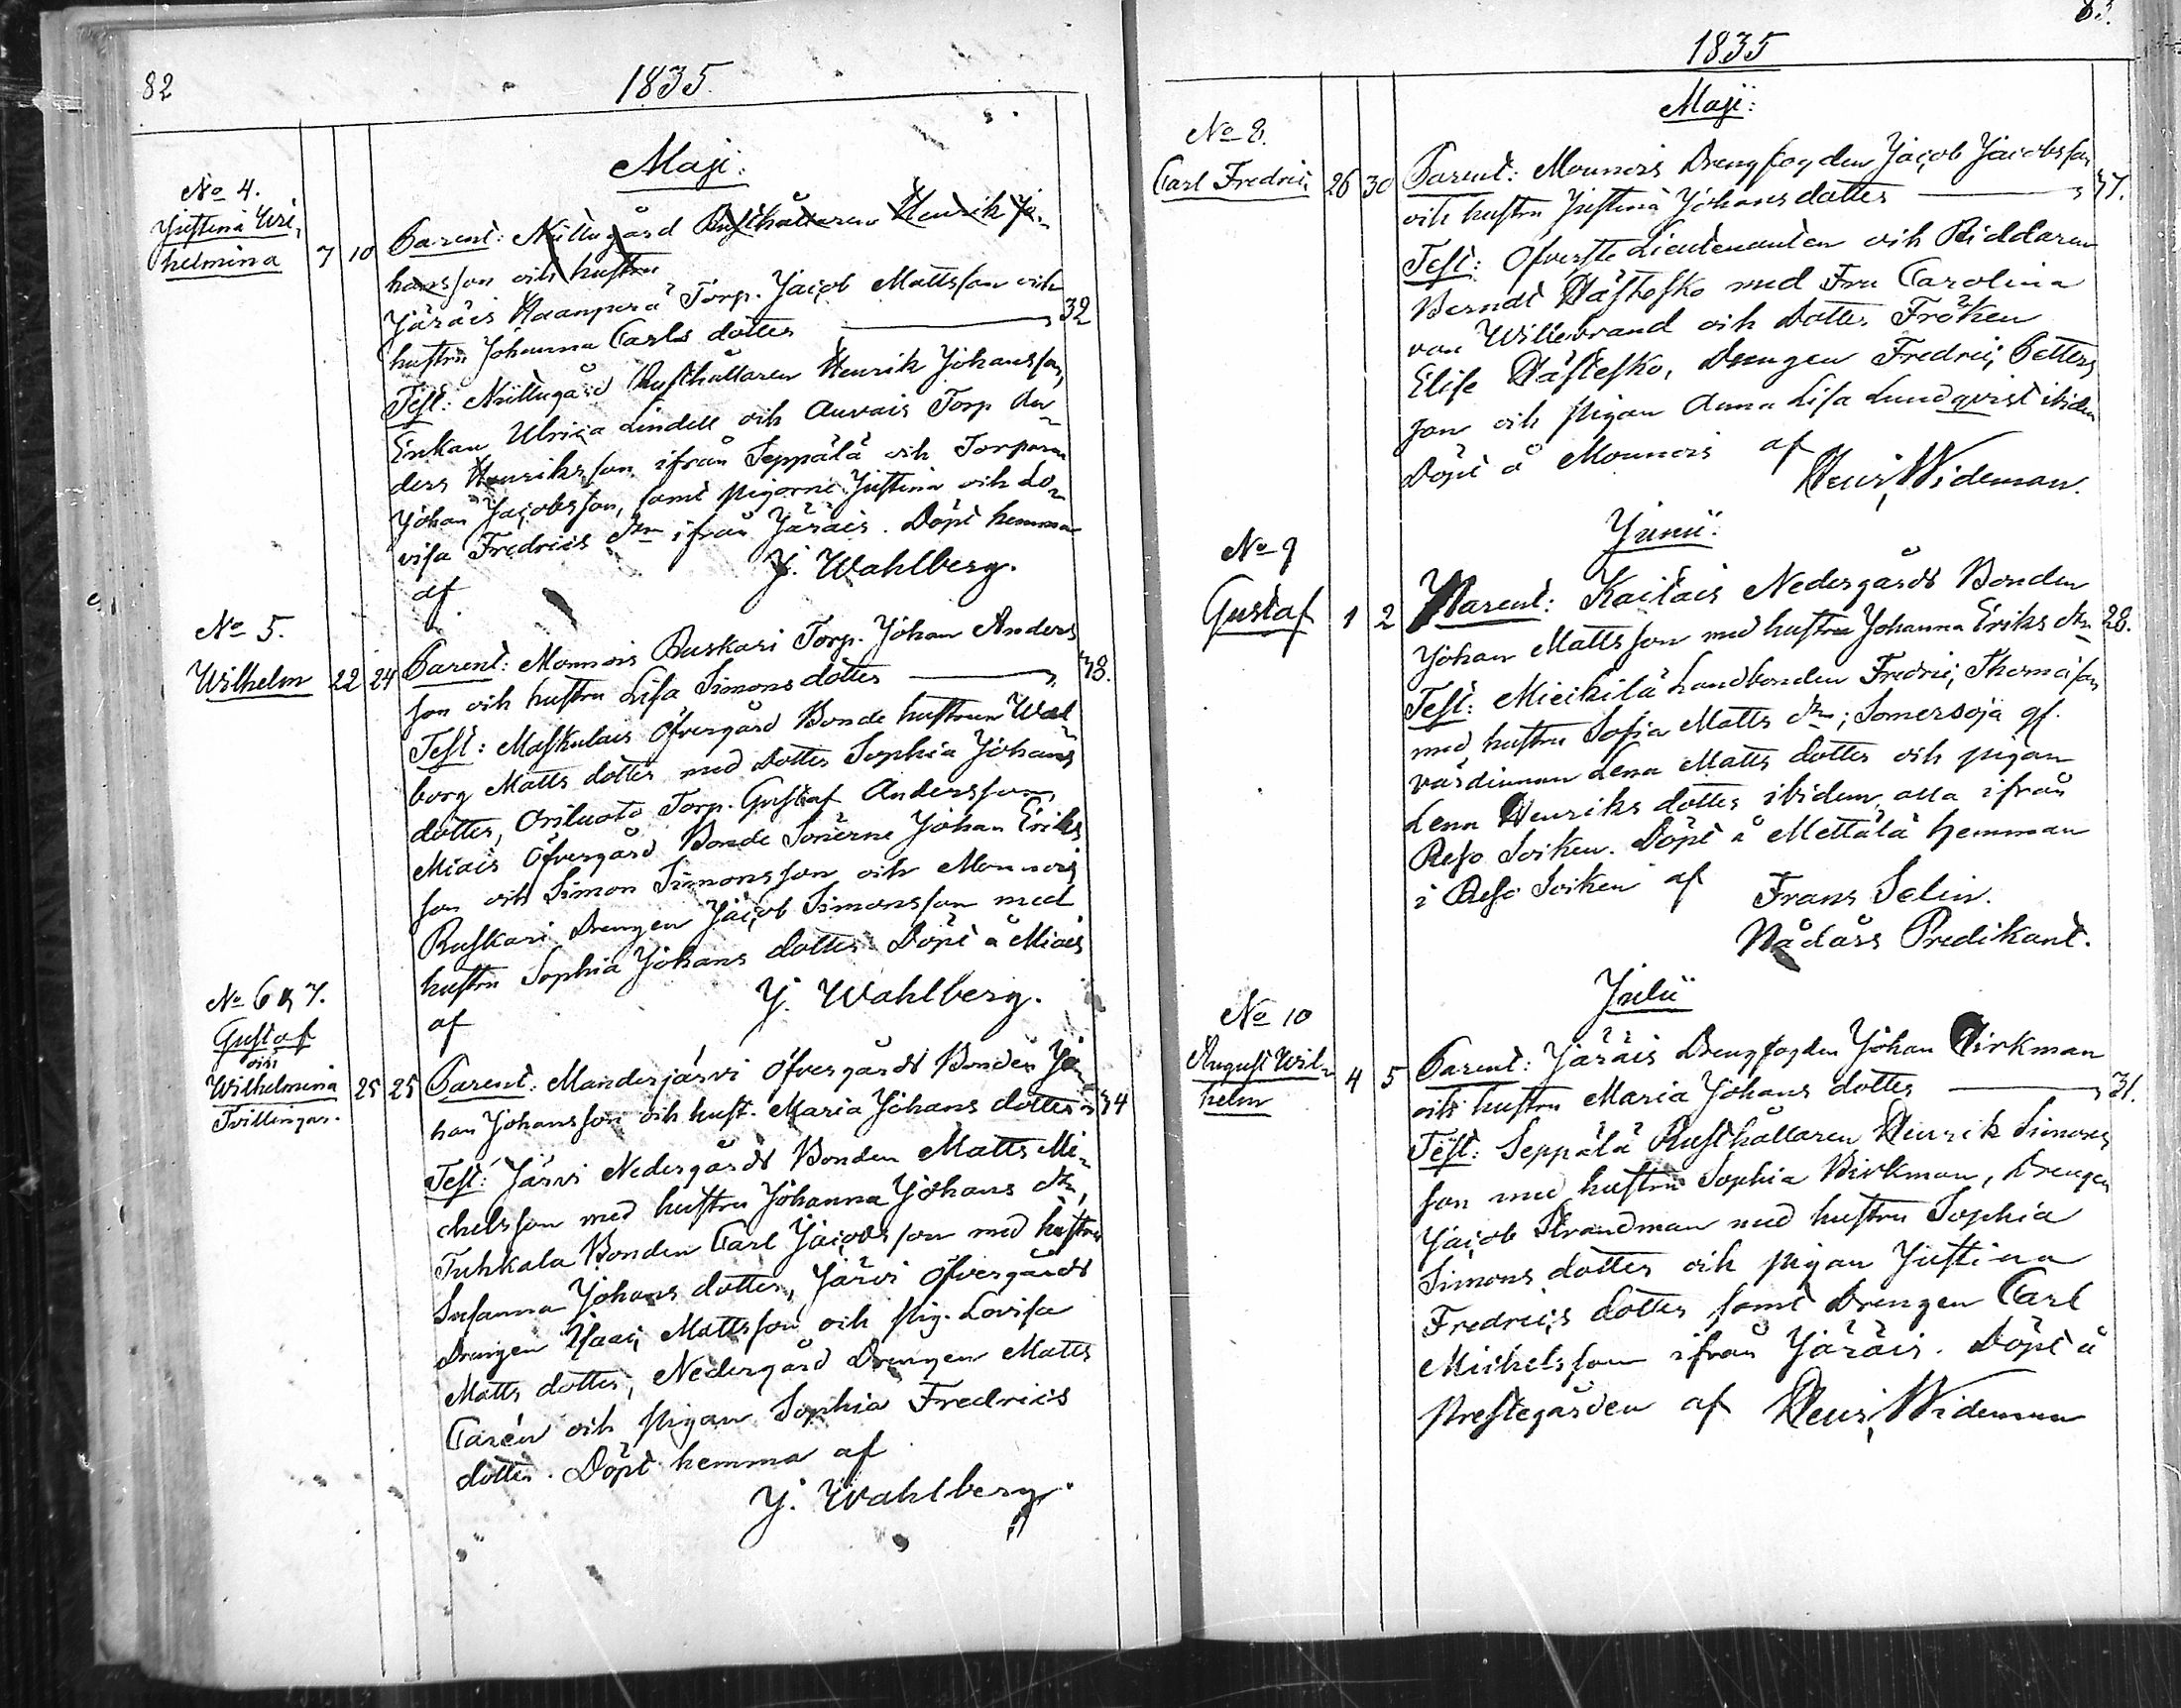 82
1835.
Maji:
No 4.
Justina Wil-
helmina
7 10
Parent: Nüttugård Rusthållaren Henrik Jo-
hansson och hustru
Järäis Haanperä Torp. Jacob Mattsson och
hustru Johanna Carls dotter 32
Test: Nüttugård Rusthållaren Henrik Johansson,
Enkan Ulrica Lindell och Auvais Torp. An-
ders Henriksson ifrån Seppälä och Torparen
Johan Jacobsson, samt pigorne Justina och Lo-
visa Fredrics dtr ifrån Järäis. Döpt hemma
af J. Wahlberg.
No 5.
Wilhelm
22 24
Parent: Monnois Ruskari Torp. Johan Anders
son och hustru Lisa Simons dotter 38.
Test: Maskulais Öfvergård Bonde hustrun Wal
borg Matts dotter med dotter Sophia Johans
dotter, Oriluoto Torp. Gustaf Andersson,
Miais Öfvergård Bonde Sönerne Johan Eriks
son och Simon Simonsson och Monnois
Ruskari Drengen Jacob Simonsson med
hustru Sophia Johans dotter. Döpt å Miais
af J. Wahlberg.
No 6 & 7.
Gustaf
och
Wilhelmina
Tvillingar.
25 25
Parent: Manderjärvi Öfvergårds Bonden Jo-
han Johansson och hust. Maria Johans dotter 34
Test: Järvi Nedergårds Bonden Matts Mi-
chelsson med hustru Johanna Johans dtr,
Tuhkala Bonden Carl Jacobsson med hustru
Susanna Johans dotter, Järvi Öfvergårds
Drengen Isaac Mattsson och pig. Lovisa
Matts dotter, Nedergård Drengen Matts
Carén och pigan Sophia Fredrics
dotter. Döpt hemma af
J. Wahlberg.
83.
1835
Maji:
No 8.
Carl Fredric
26 30
Parent: Monnois Drengfogden Jacob Jacobsson
och hustru Justina Johans dotter 37.
Test: Öfverste Lieutenanten och Riddaren
Berndt Hästesko med Fru Carolina
von Willebrand och dotter Fröken
Elise Hästesko, Drengen Fredric Petters
son och pigan Anna Lisa Lundqvist ibidem
Döpt å Monnois af
Henr. Wideman.
Junii:
No 9
Gustaf
1 2
Parent: Kaitais Nedergårds Bonden
Johan Mattsson med hustru Johanna Eriks dtr 28.
Test: Miekilä Landbonden Fredric Thomasson
med hustru Sofia Matts dtr; Somersoja gl.
värdinnan Lena Matts dotter och pigan
Lena Henriks dotter ibidem, alla ifrån
Reso Socken. Döpt å Mettälä hemman
i Reso Socken af
Frans Selin.
Nådårs Predikant.
Julii
No 10
August Wil-
helm
4 5
Parent: Järäis Drengfogden Johan Birkman
och hustru Maria Johans dotter 31.
Test: Seppälä Rusthållaren Henrik Simons
son med hustru Sophia Birkman, Drengen
Jacob Strandman med hustru Sophia
Simons dotter och pigan Justina
Fredrics dotter samt Drengen Carl
Michelsson ifrån Järäis. Döpt å
Prestegården af Henr. Wideman